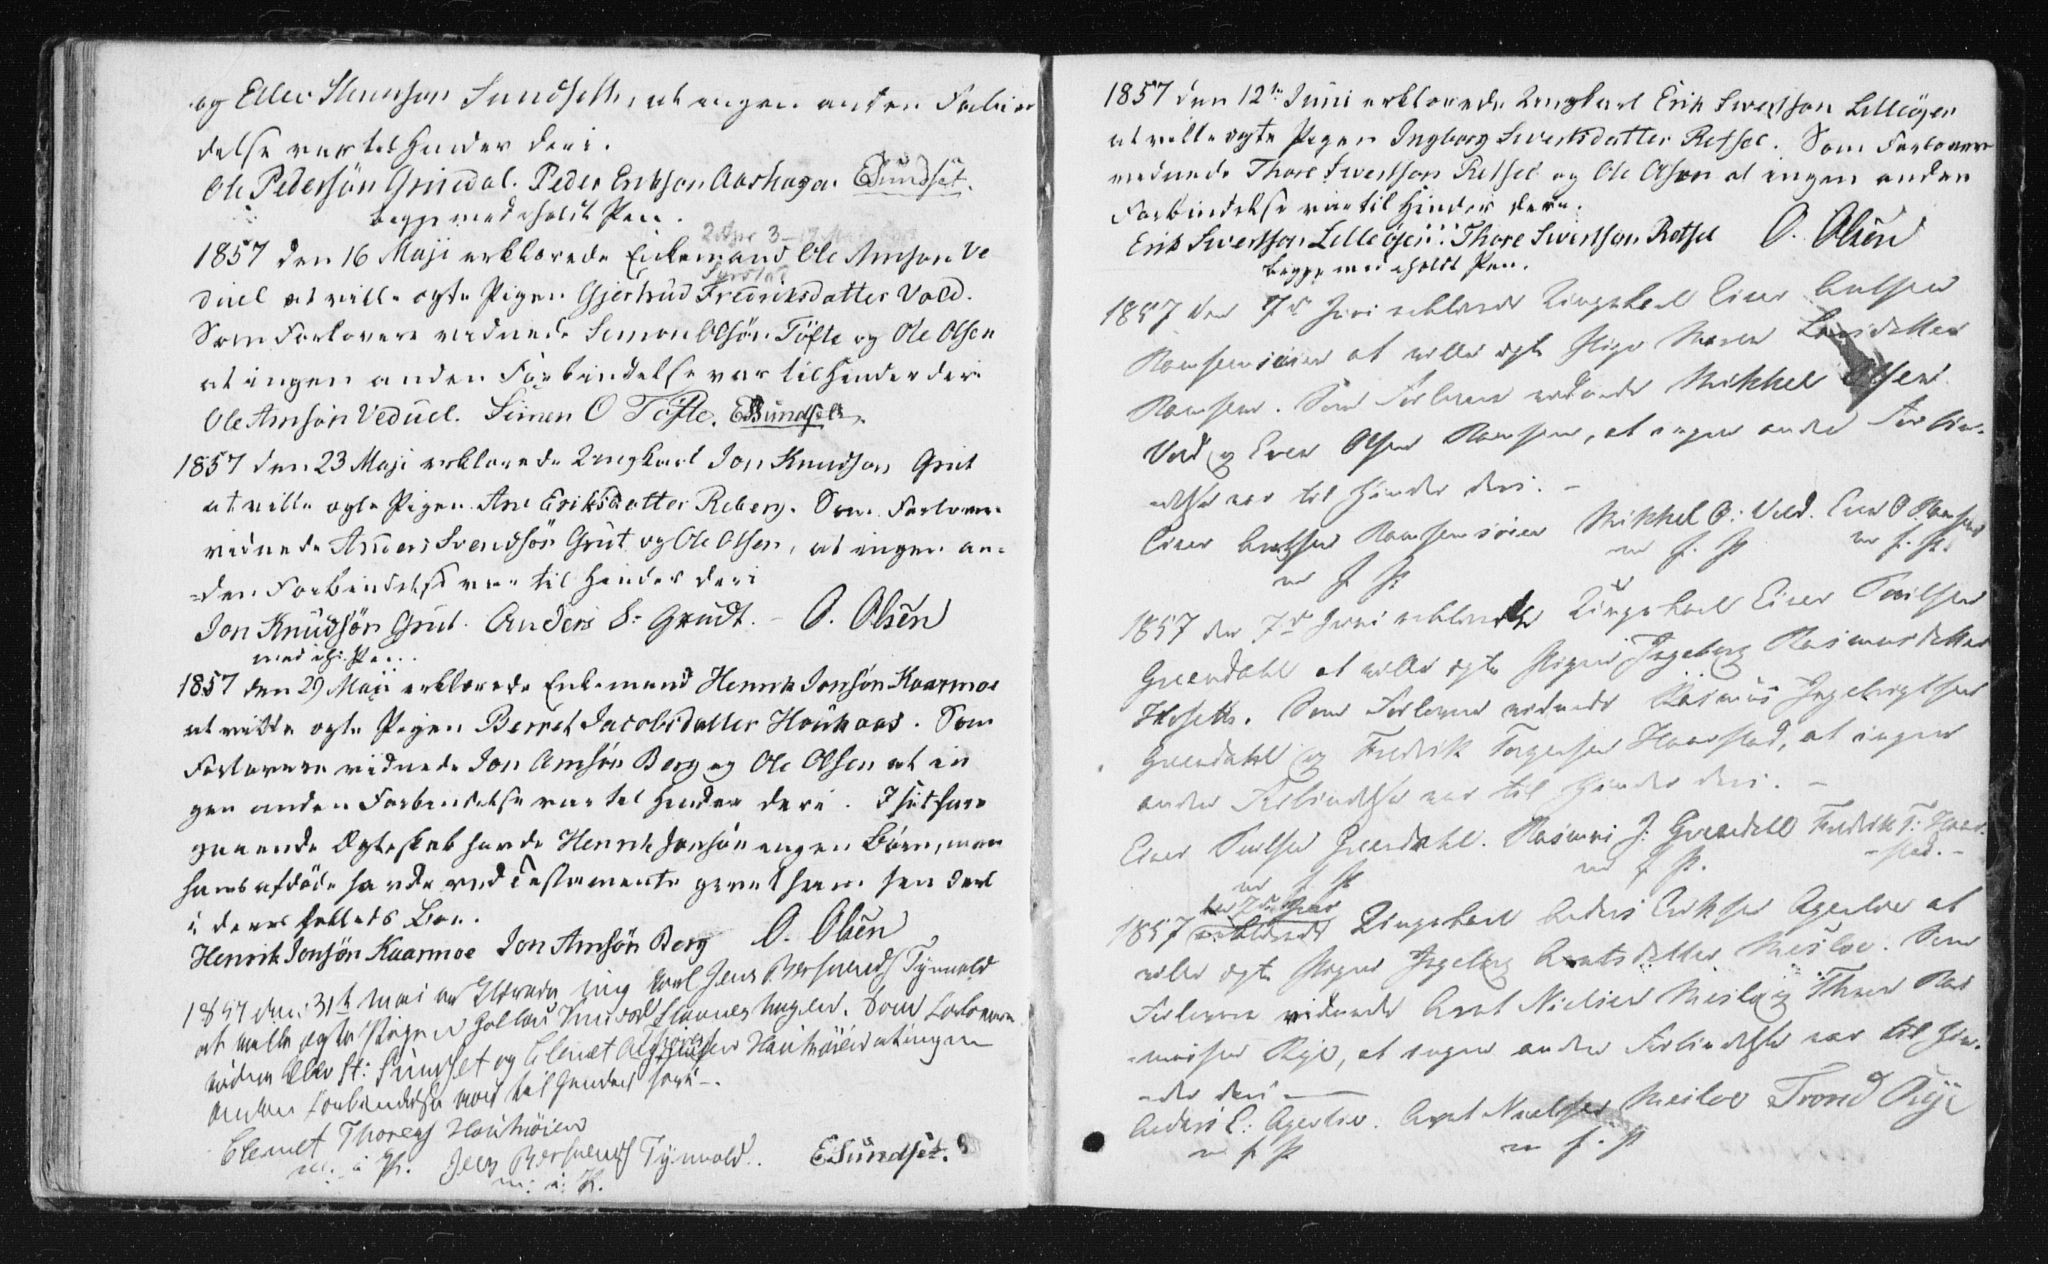 og Eller Steenson Sundseth, at ingen anden Forbin
delse var til Hinder deri.
Ole Pedersön Grindal. Peder Erikson Aashaga. ESundset.
begge med iholdt Pen.
1857 den 16 Maji erklærede Enkemand Ole Arnson Ve
duel at ville ægte Pigen Gjertrud Fredriksdatter Vold.
Som Forlovere vidnede Simon Olsön Töfte og Ole Olsen
at ingen anden Forbindelse var til Hinder deri
Ole Arnsön Veduel. Simen O Tøfte. ESundset.
1857 den 23 Maji erklærede Ungkarl Jon Knudson Grut
at ville ægte Pigen Ane Eriksdatter Reberg. Som Forlovere
vidnede Anders Svendsön Grut og Ole Olsen, at ingen an-
-den Forbindelse var til Hinder deri
Jon Knudsön Grut. Anders S. Grudt. – O. Olsen
med ih. Pen.
1857 den 29 Maji erklærede Enkemand Henrik Jonsön Kaarmoe
at ville ægte Pigen Berret Jacobsdatter Houkaas. Som
Forlovere vidnede Jon Arnsön Berg og Ole Olsen at in
gen anden Forbindelse var til Hinder deri. I sit fore
gaaende Ægteskab havde Henrik Jonsön ingen Börn, men
hans afdöde havde ved Testamente givet ham sin Deel
i deres fælleds Boe.
Henrik Jonsön Kaarmoe Jon Arnsön Berg O. Olsen
1857 den 31te Mai erklærede ung karl Jens Bersvends Tynvold
at ville ægte Pigen Knudsd Som Forlovere
vidner Eller St: Sundset og Clemet Houkøien at ingen
anden Forbindelse var til Hinder heri –.
Clemet Thores Houkøien
m. i P. Jens Bersvends Tynvold. ESundset.
m: i: P.
1857 den 12te Juni erklærede Ungkarl Erik Sivertson Lilleöyen
at ville ægte Pigen Ingborg Sivertsdatter Retsel. Som Forlovere
vidnede Thore Sivertson Retsel og Ole Olsen at ingen anden
Forbindelse var til Hinder deri.
Erik Sivertson Lilleöyen. Thore Sivertson Retsel O. Olsen
begge med iholdt Pen.
1857 den 7de Juni erklærede Ungekarl Einer
at ville ægte Pige Maren Larsdatter
Som Forlovere vidnede Mikkel Olsen
Vold og Even Olsen, at ingen anden Forbin-
-delse var til Hinder deri. –
Mikkel O: Vold. Even O.
m f. P m f. P.
m f P
1857 den 7de Juni erklærede Ungekarl Einer
Grendahl at ville ægte Pigen Ingeborg Rasmusdatter
Som Forlovere vidnede Rasmus Ingebrigtsen
Grendahl og Fredrik Torgersen Haarstad, at ingen
anden Forbindelse var til Hinder deri. –
Einer Grendahl. Rasmus J: Grendahl Fredrik T: Haar-
-stad. –
m f P m f P.
den 7de Juni
1857 erklærede Ungekarl Anders Eriksen Agerloe at
ville ægte Pigen Ingeborg Arntsdatter Mesloe. Som
Forlovere vidnede Arnt Nielsen Mesloe og
Rye, at ingen anden Forbindelse var til Hin-
-der deri –
Anders E: Agerloe. Arnt Nielsen Mesloe Trond Rye
m f P m f. P